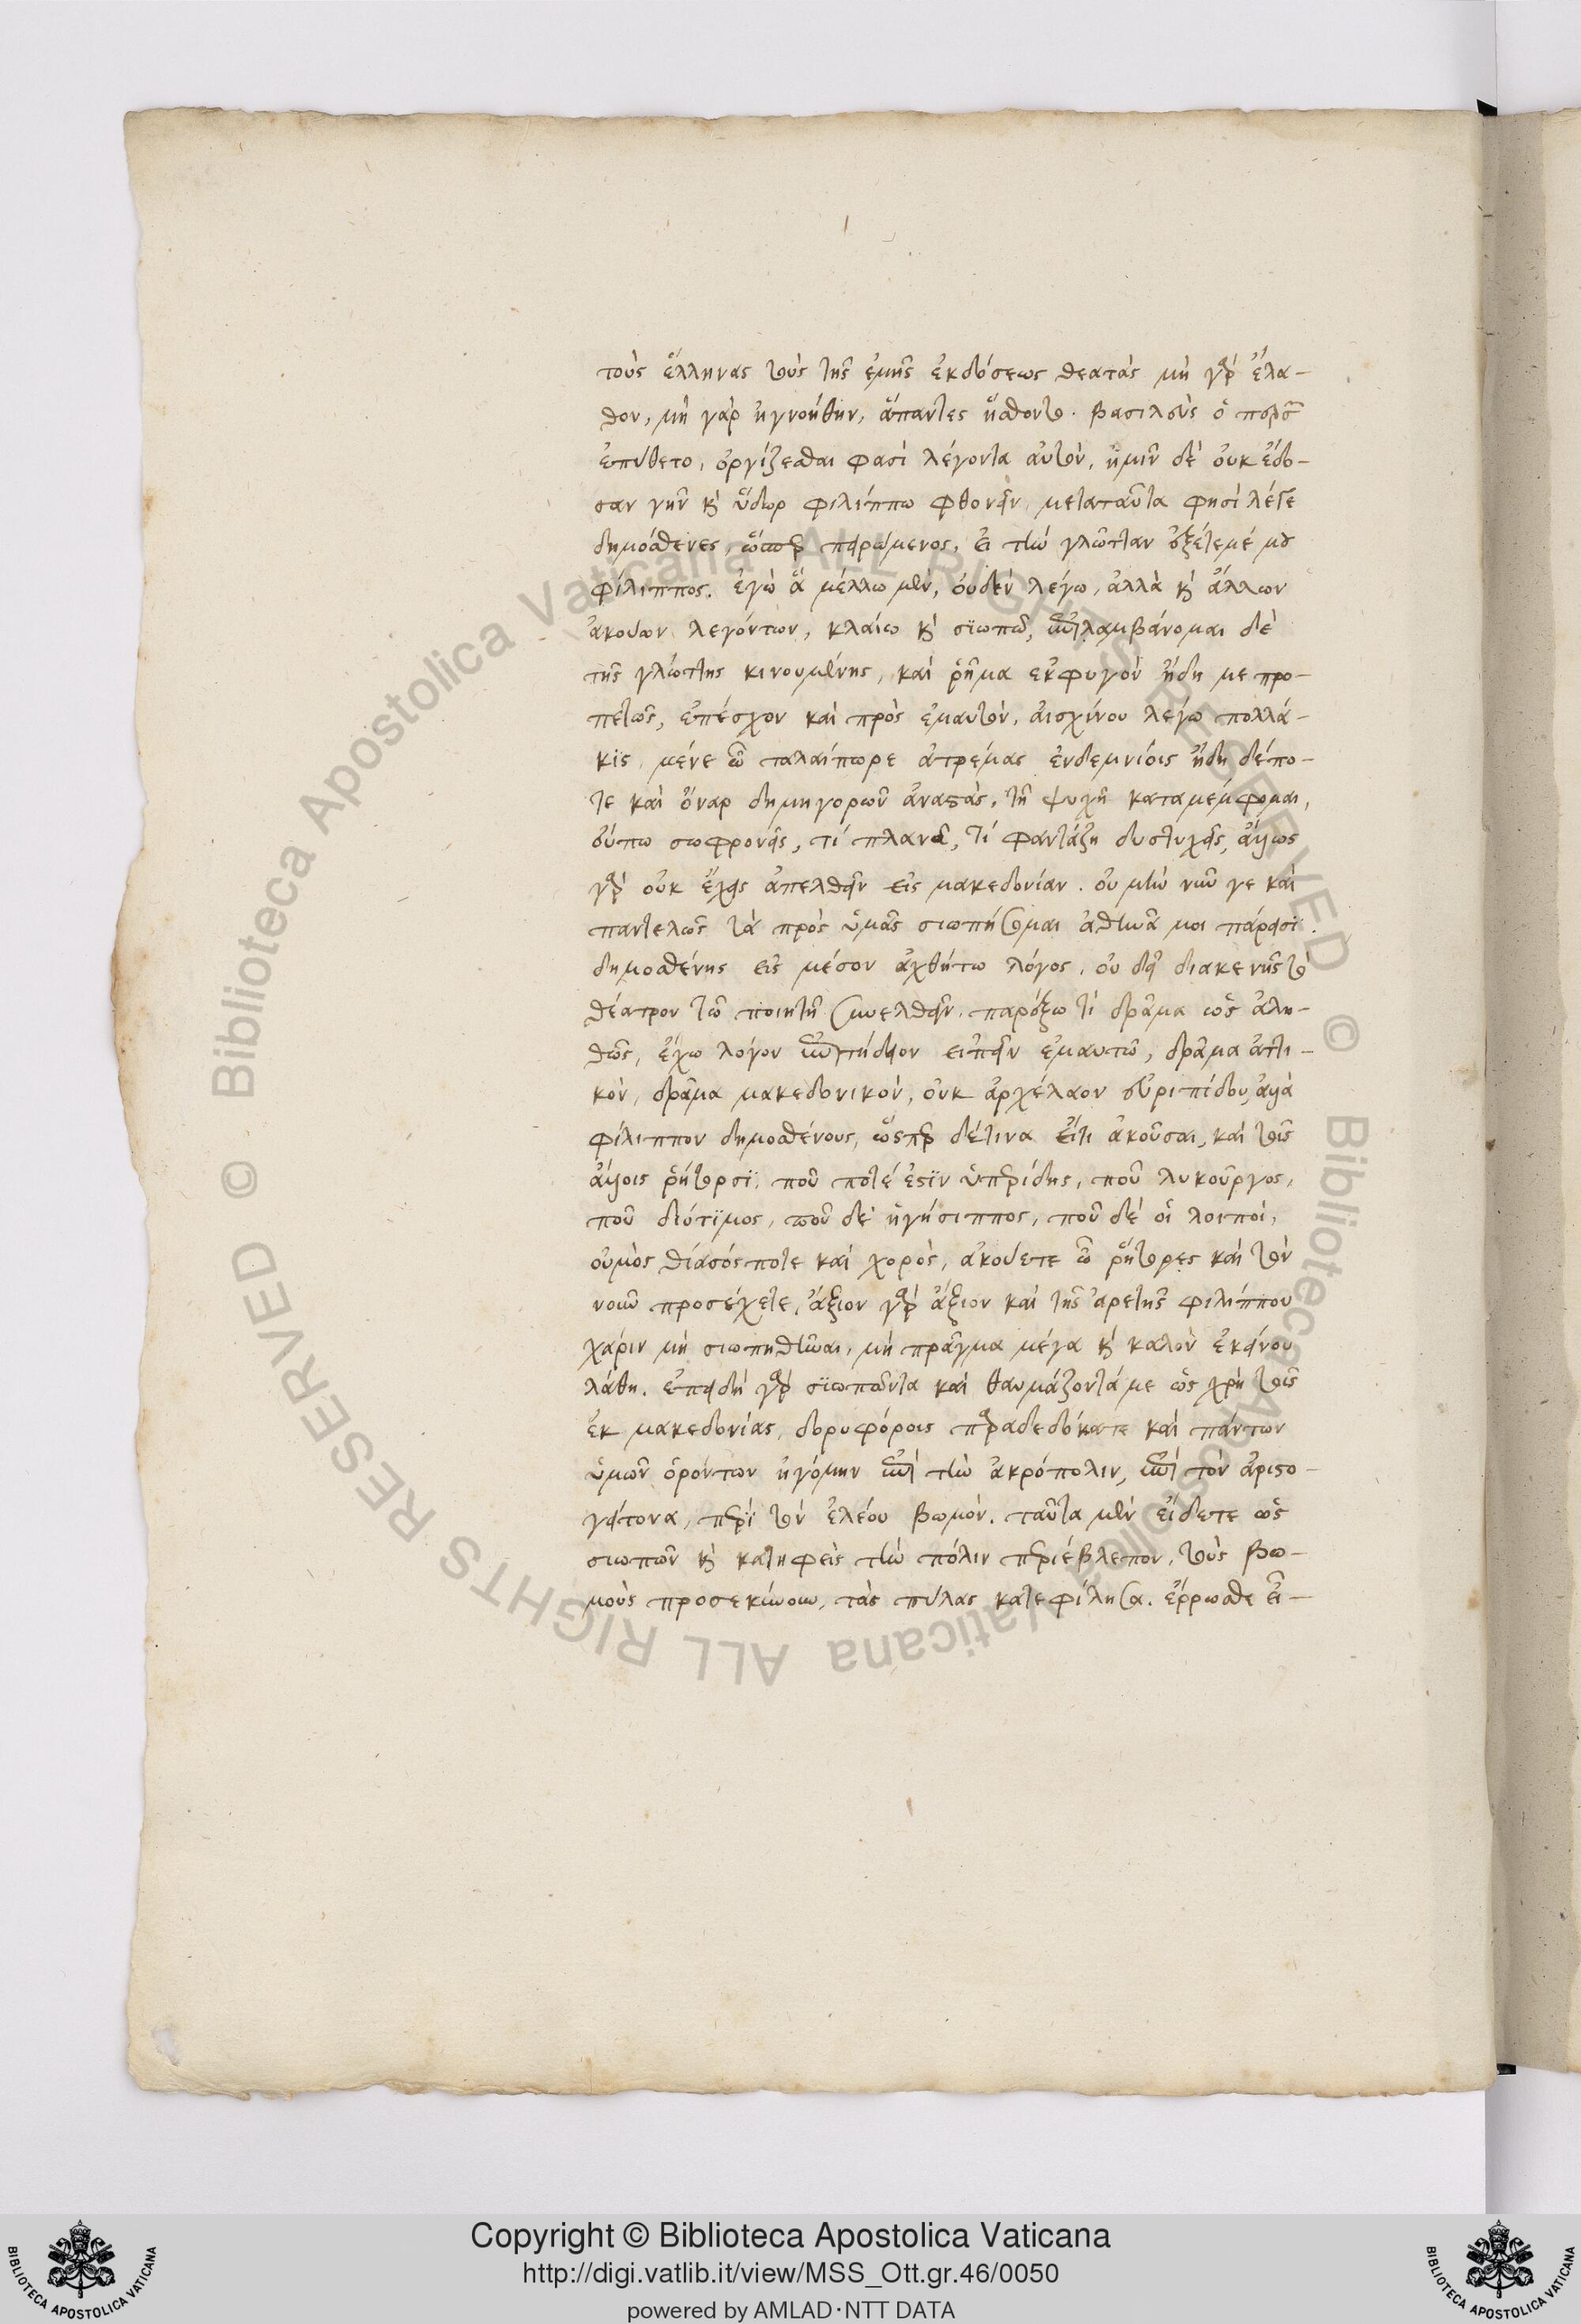 τοὺς ἕλληνας τοὺς τῆς ἐμῆς ἐκδόσεως θεατάς μὴ γὰρ ἔλα-
θον, μὴ γὰρ ἠγνοήθην, ἅπαντες ἤσθοντο. βασιλεὺς ὁ πέρσης
ἐπύθετο, ὀργίζεσθαι φασὶ λέγοντα αὐτὸν, ἡμῖν δὲ οὐκ ἔδο-
σαν γῆν καὶ ὕδωρ φιλίππω φθονεῖν, μεταταῦτα φησὶ λέγε
δημόσθενες, ὥσπερ πειρώμενος, εἰ τὴν γλῶτταν ἐξέτεμέ μου
φίλιππος. ἐγὼ ἃ μέλλω μὲν, οὐδὲν λέγω, ἀλλὰ καὶ ἄλλων
ἀκούων λεγόντων, κλαίω καὶ σϊωπῶ, ἐπιλαμβάνομαι δὲ
τῆς γλώττης κινουμένης, καὶ ῥῆμα ἐκφυγὸν ἤδη με προ-
πετῶς, ἐπέσχον καὶ πρὸς ἐμαυτὸν, αἰσχίνου λέγω πολλά-
κϊς, μένε ὦ ταλαίπωρε ἀτρέμας ἐνδεμνίοις ἤδη δέπο-
τε καὶ ὄναρ δημηγορῶν ἀναστὰς, τῆ ψυχῆ καταμέμφομαι,
οὔπω σωφρονεῖς, τί πλανᾶ, τί φαντάζη δυστυχεῖς, ἄλλως
γὰρ οὐκ ἔχεις ἀπελθεῖν εἰς μακεδονίαν. οὐ μὴν νῦν γε καὶ
παντελῶς τὰ πρὸς ὑμᾶς σιωπήσομαι ἀθηνᾶ μοι πάρεσϊ.
δημοσθένης εἰς μέσον ἀχθήτω λόγος, οὐ δεῖ διακενῆς τὸ
θέατρον τῶ ποιητῆ συνελθεῖν, παρέξω τὶ δρᾶμα ὡς ἀλη-
θῶς, ἔχω λόγον ἐπιτήδειον εἰπεῖν ἐμαυτῶ, δρᾶμα ἀττι-
κὸν, δρᾶμα μακεδονικὸν, οὐκ ἀρχέλαον εὐριπίδου, ἀλλὰ
φίλιππον δημοσθένους, ὥσπερ δέτινα ἔτι ἀκοῦσαι, καὶ τοῖς
ἄλλοις ῥήτορσϊ. ποῦ ποτέ ἐστϊν ὑπερίδης, ποῦ λυκοῦργος,
ποῦ διότϊμος, ποῦ δὲ ἡγήσιππος, ποῦ δὲ οἱ λοιποὶ,
οὑμὸς θίασόςποτε καὶ χορὸς, ἀκούετε ὦ ῥήτορες καὶ τὸν
νοῦν προσέχετε, ἄξιον γὰρ ἄξιον καὶ τῆς ἀρετῆς φιλίππου
χάριν μὴ σιωπηθῆναι, μὴ πρᾶγμα μέγα καὶ καλὸν ἐκείνου
λάθη. ἐπειδὴ γὰρ σϊωπῶντα καὶ θαυμάζοντά με ὡς χρὴ τοῖς
ἐκ μακεδονίας, δορυφόροις παραδεδώκατε καὶ πάντων
ὑμῶν ὁρόντων ἠγόμην ἐπὶ τὴν ἀκρόπολιν, ἐπὶ τὸν ἀριστο-
γείτονα, περῒ τὸν ἐλέου βωμὸν. ταῦτα μὲν εἴδετε ὡς
σιωπῶν καὶ κατηφεὶς τὴν πόλιν περιέβλεπον, τοὺς βω-
μοὺς προσεκύνουν, τὰς πύλας κατεφίλησα. ἔρρωσθε εἶ-
Copyright © Biblioteca Apostolica Vaticana
http://digi.vatlib.it/view/MSS_Ott.gr.46/0050
powered by AMLAD·NTT DATA